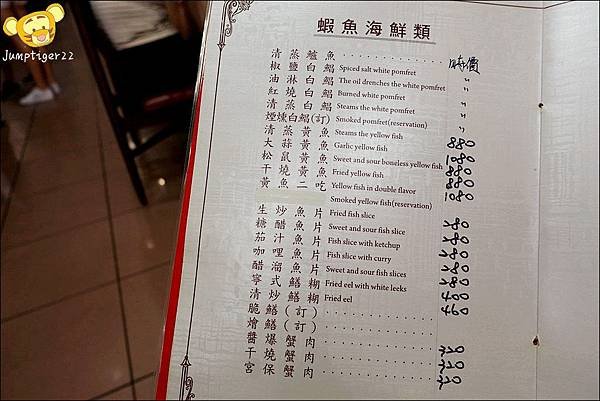 Jumptiger22
蝦魚海鮮類
清蒸鱸魚 時價
椒鹽白鯧 Spiced salt white pomfret 〃
油淋白鯧 The oil drenches the white pomfret 〃
紅燒白鯧 Burned white pomfret 〃
清蒸白鯧 Steams the white pomfret 〃
煙燻白鯧(訂) Smoked pomfret(reservation) 〃
清蒸黃魚 Steams the yellow fish 880
大蒜黃魚 Garlic yellow fish 1080
松鼠黃魚 Sweet and sour boneless yellow fish 880
干燒黃魚 Fried yellow fish 880
黃魚二吃 Yellow fish in double flavor 1080
Smoked yellow fish(reservation)
生炒魚片 Fried fish slice 280
糖醋魚片 Sweet and sour fish slice 280
茄汁魚片 Fish slice with ketchup 280
咖哩魚片 Fish slice with curry 280
醋溜魚片 Sweet and sour fish slices 280
寧式鱔糊 Fried eel with white leeks 400
清炒鱔糊 Fried eel 460
脆鱔(訂)
燴鱔(訂)
醬爆蟹肉
干燒蟹肉
宮保蟹肉